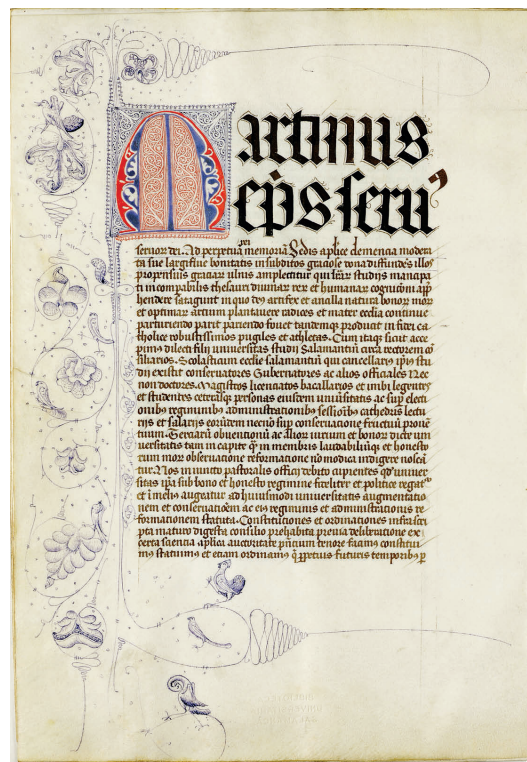 Martinus
ep̄s seru⁹
seruor dei. Ad perpetuā rei memoriā Sedis aplice clemencia modera
ta sue largiflue bonitatis in subditos graciose dona diffundēs illos
propensius graciar ulnis amplectitur qui lr̄ar studijs mancipa
ti incōpabilis thesauri diuinar rerū et humanar cognicōm app̄
hendere satagunt in quo deꝰ artifex et ancilla natura bonor mor
et optimar arcium plantauere radices et mater ecclia continue
parturiendo parit pariendo fouet tandemqꝫ producit in fidei ca
tholice robustissimos pugiles et athletas. Cum itaqꝫ sicut acce
pimꝰ dilecti filij uniuersitas studij Salamantin̄ circa rectorem cō
siliarios. Scolasticum ecclie salamantin̄ qui cancellariꝰ ip̄ius stu
dij existit conseruatores Gubernatores ac alios officiales Nec
non doctores. Magistros licenciatos bacallarios et inibi legentes
et studentes ceterasqꝫ personas eiusdem uniūsitatis ac sup̄ electi
onibꝰ regiminibꝰ administracionibꝰ sessioībꝰ cathedris lectu
rijs et salarijs eorūdem necnō sup̄ conseruacione fructuū prouē
tuum. Terciarū obuencionū ac Alior iurium et bonor dicte uni
uersitatis tam in capite qꝫ in membris laudabiliūqꝫ et honesto
rum mor obseruacione reformacione nō modica indigere noscā
tur. Nos iniuncto pastoralis officij debito cupientes qd' uniuer
sitas ip̄a sub bono et honesto regimine feliciter et politice regat
et ī melius augeatur ad huiusmodi uniuersitatis augmentatio
nem et conseruacioēm ac eiꝰ regiminis et administracionis re
formacionem statuta. Constituciones et ordinationes infrascri
pta maturo digesta consilio prehabita preuia deliberatione ex
certa sciencia aplica auctoritate pn̄cium tenore facimꝰ constitui
mꝰ statuimꝰ et etiam ordinamꝰ q̄ ꝑpetuis futuris temporibꝰ ꝑ